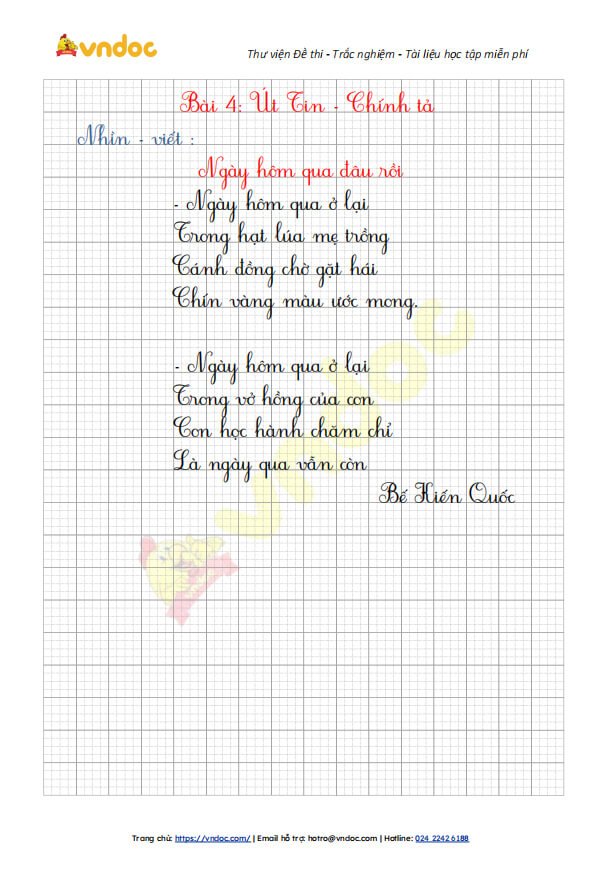 vndoc
Thư viện Đề thi - Trắc nghiệm - Tài liệu học tập miễn phí
Bài 4: Út Tin - Chính tả
Nhìn - viết :
Ngày hôm qua đâu rồi
- Ngày hôm qua ở lại
Trong hạt lúa mẹ trồng
Cánh đồng chờ gặt hái
Chín vàng màu ước mong.
- Ngày hôm qua ở lại
Trong vở hồng của con
Con học hành chăm chỉ
Là ngày qua vẫn còn
Bế Kiến Quốc
vndoc
Trang chủ: https://vndoc.com/ | Email hỗ trợ: hotro@vndoc.com | Hotline: 024 2242 6188